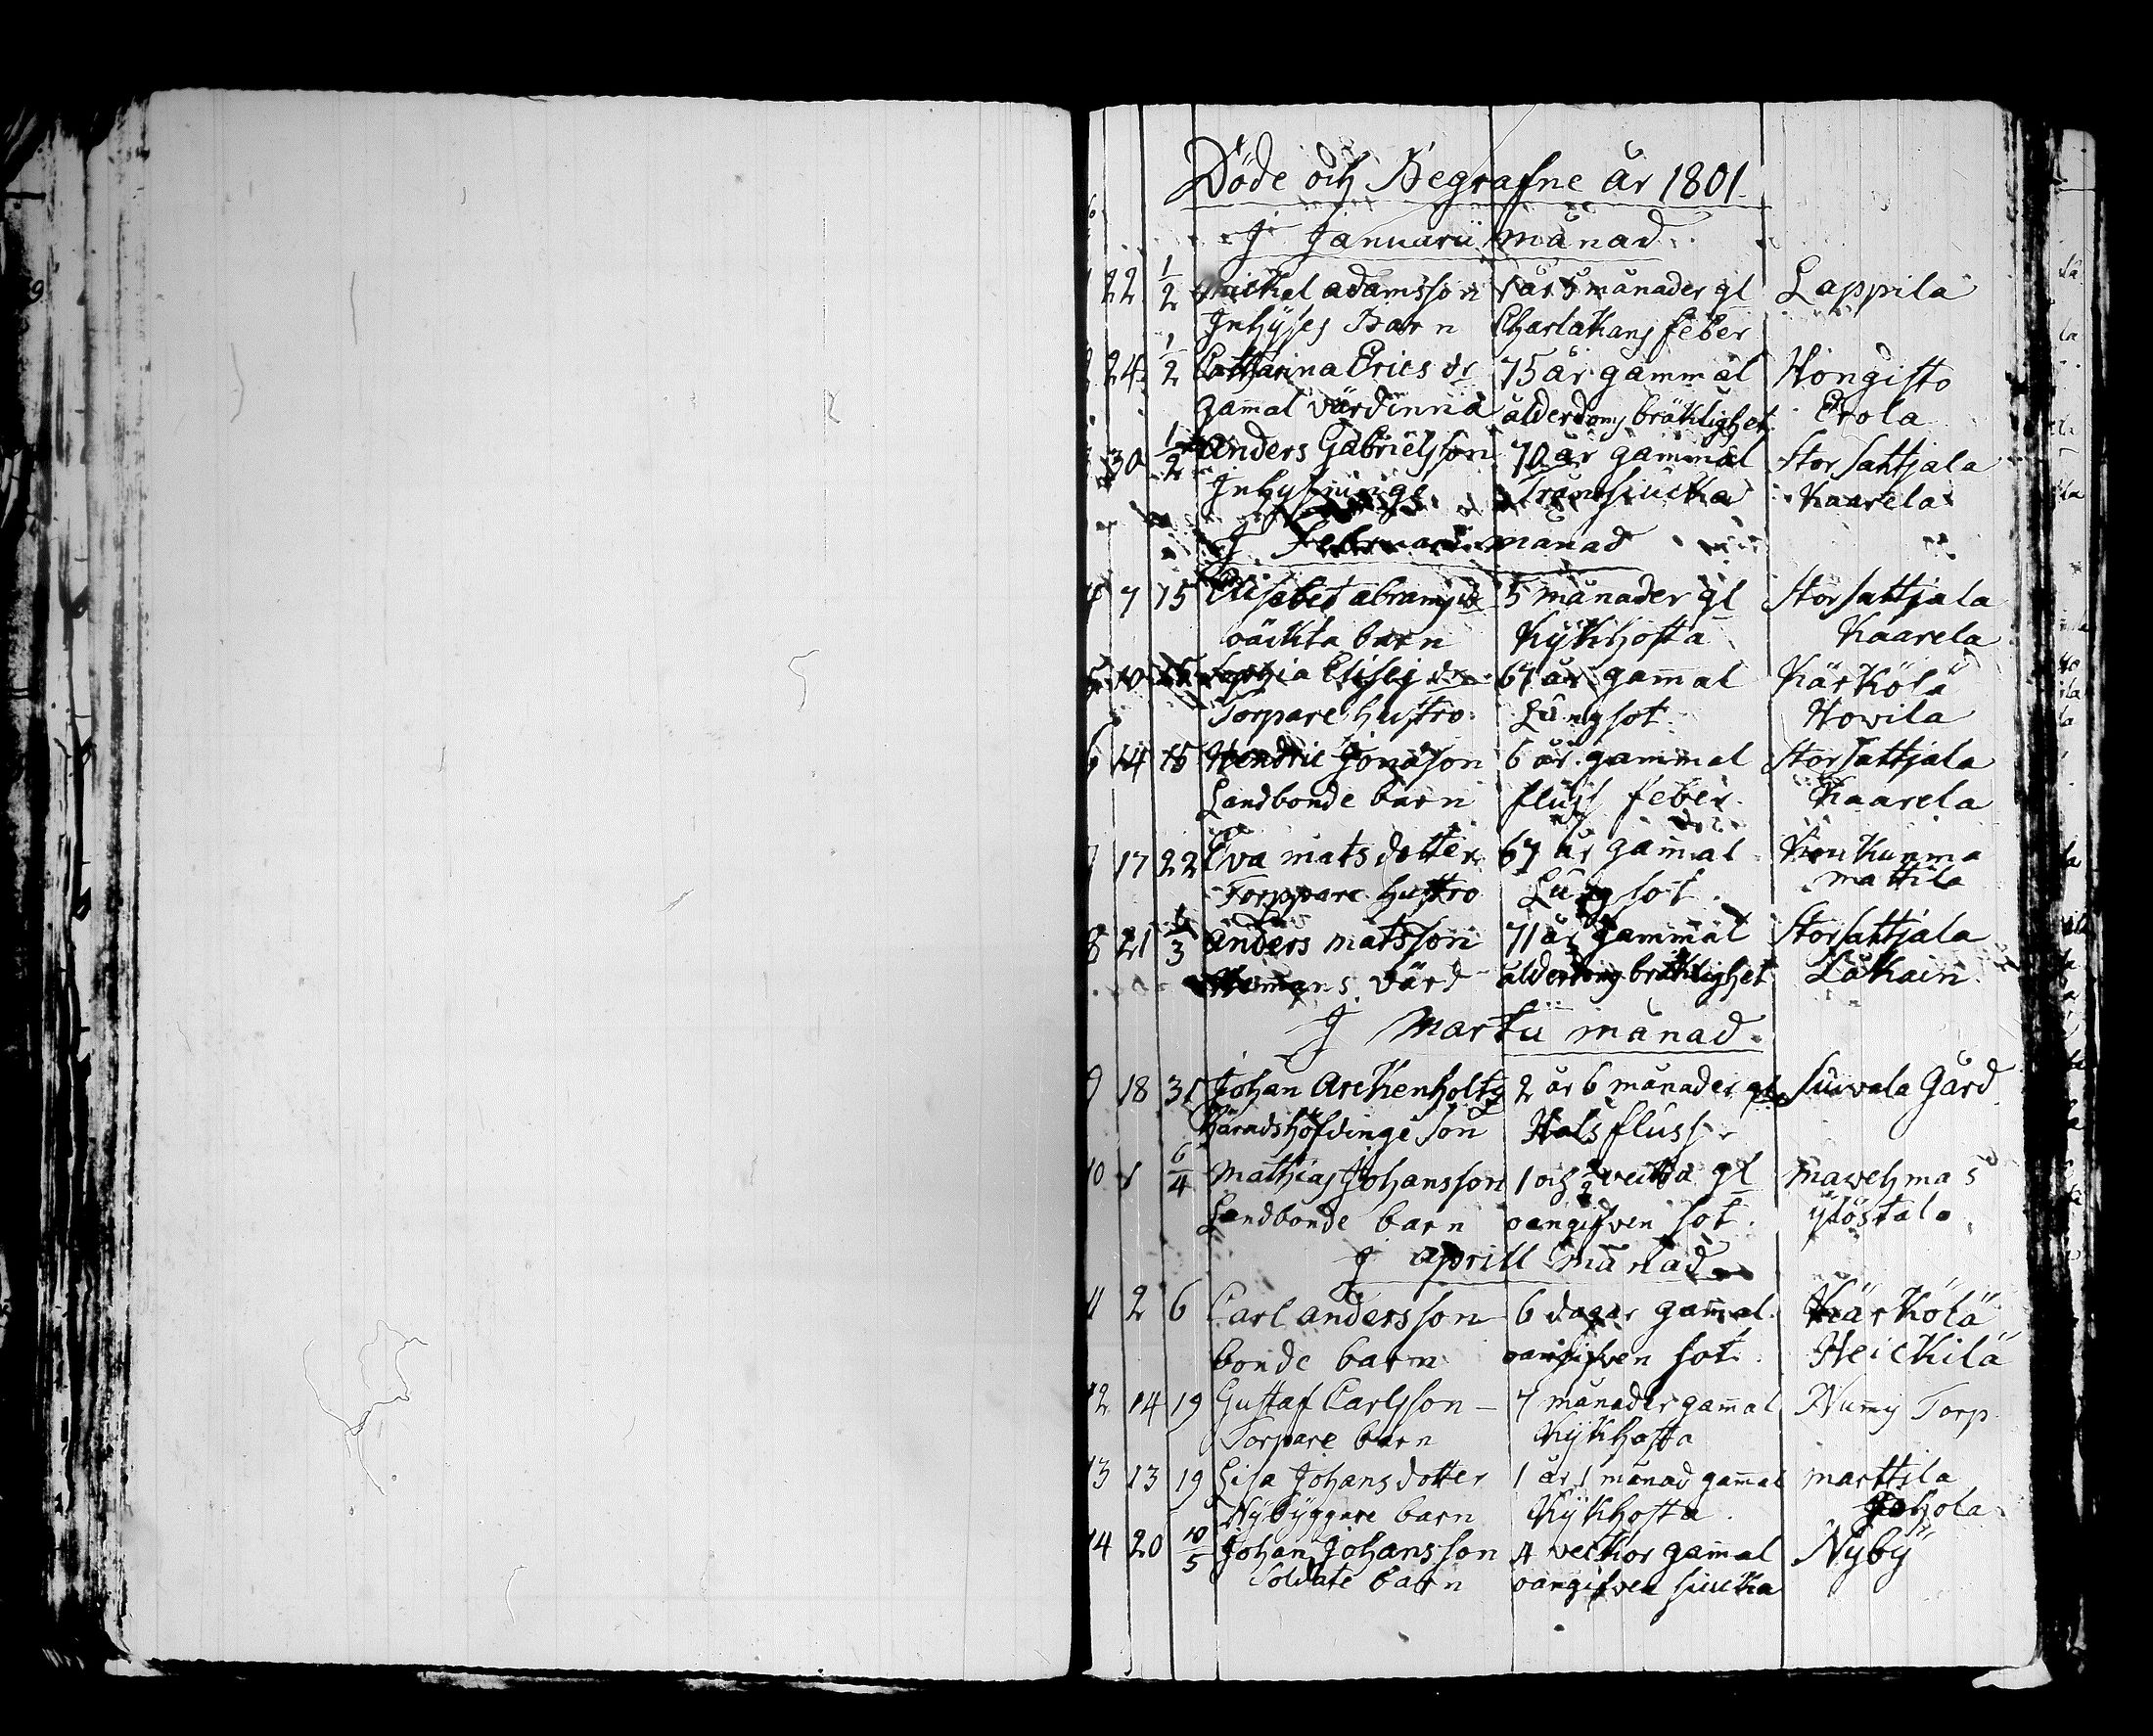 Döde och Begrafne år 1801.
J Januarii månad.
1 22 1/2 Michel adamsson 1 år 5 månader gl Lappila
Inhyses Barn Charlakans feber
2 24 1/2 Catharina Erics dr 75 år gammal Hongisto
gam̅al värdinna ålderdoms bräklighet Erola
3 30 1/2 Anders Gabrielsson 70 år gammal Stor Sattjala
Inhysnings siucka Kaarela
J Februarii månad
4 7 15 Elisabet abrams dr 5 månader gl Stor Sattjala
oäckta barn Kykhosta Kaarela
5 10 15 Sophia Elisej dr 67 år gam̅al Kärkölä
Torpare hustro Lungsot Howila
6 14 15 Hendric Jonasson 6 år gammal Stor Sattjala
Landbonde barn fluss feber Kaarela
7 17 22 Eva mats dotter 67 år gam̅al Koukunma
Torppare hustro Lungsot mattila
8 21 1/3 anders matsson 71 år gammal Stor Sattjala
värd ålderdoms bräklighet Låkain
J Martii månad.
9 18 31 Johan Arckenholtz 2 år 6 månader gl Siuvala Gård
Häradshöfdinge son Hals fluss
10 1 6/4 Mathias Johansson 1 och 1/2 vecka gl mawehma s
Landbonde barn oangifven sot. ylöstalo
J Aprill månad
11 2 6 Carl andersson 6 dagar gam̅al. Kärkölä
bonde barn oangifven sot. Heickilä
12 14 19 Gustaf Carlsson – 7 månader gam̅al Num̅y Torp
Torpare barn Kykhosta
13 13 19 Lisa Johans dotter 1 år 1 månad gam̅al marttila
Nybyggare barn Kykhosta. Jahola
14 20 10/5 Johan Johansson 4 veckor gam̅al Nyby
Soldate barn oangifven siucka